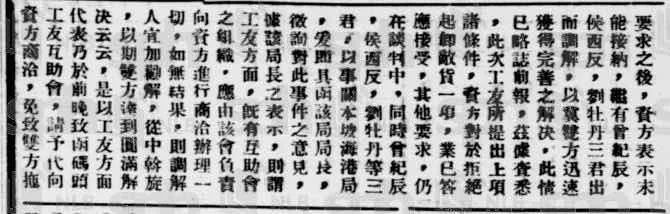 要求之後，資方表示未
能接納，繼有曾紀辰，
侯西反，劉牡丹三君出
而調解，以冀雙方迅速
獲得完善之解決，此情
已略誌前報，茲據查悉
，此次工友所提出上項
諸條件，資方對於拒絕
起卸敵貨一項，業已答
應接受，其他要求，仍
在談判中，同時曾紀辰
，侯西反，劉牡丹等三
君，以事關本坡海港局
，爰聯具函該局局長，
徵詢對此事件之意見，
據該局長之表示，則謂
工友方面，既有互助會
之組織，應由該會負責
向資方進行商洽辦理一
切，如無結果，則調解
人宜加勸解，從中斡旋
，以期雙方達到圓滿解
决云云，是以工友方面
代表乃於前晚致函碼頭
工友互助會，請予代向
資方商洽，免致雙方拖